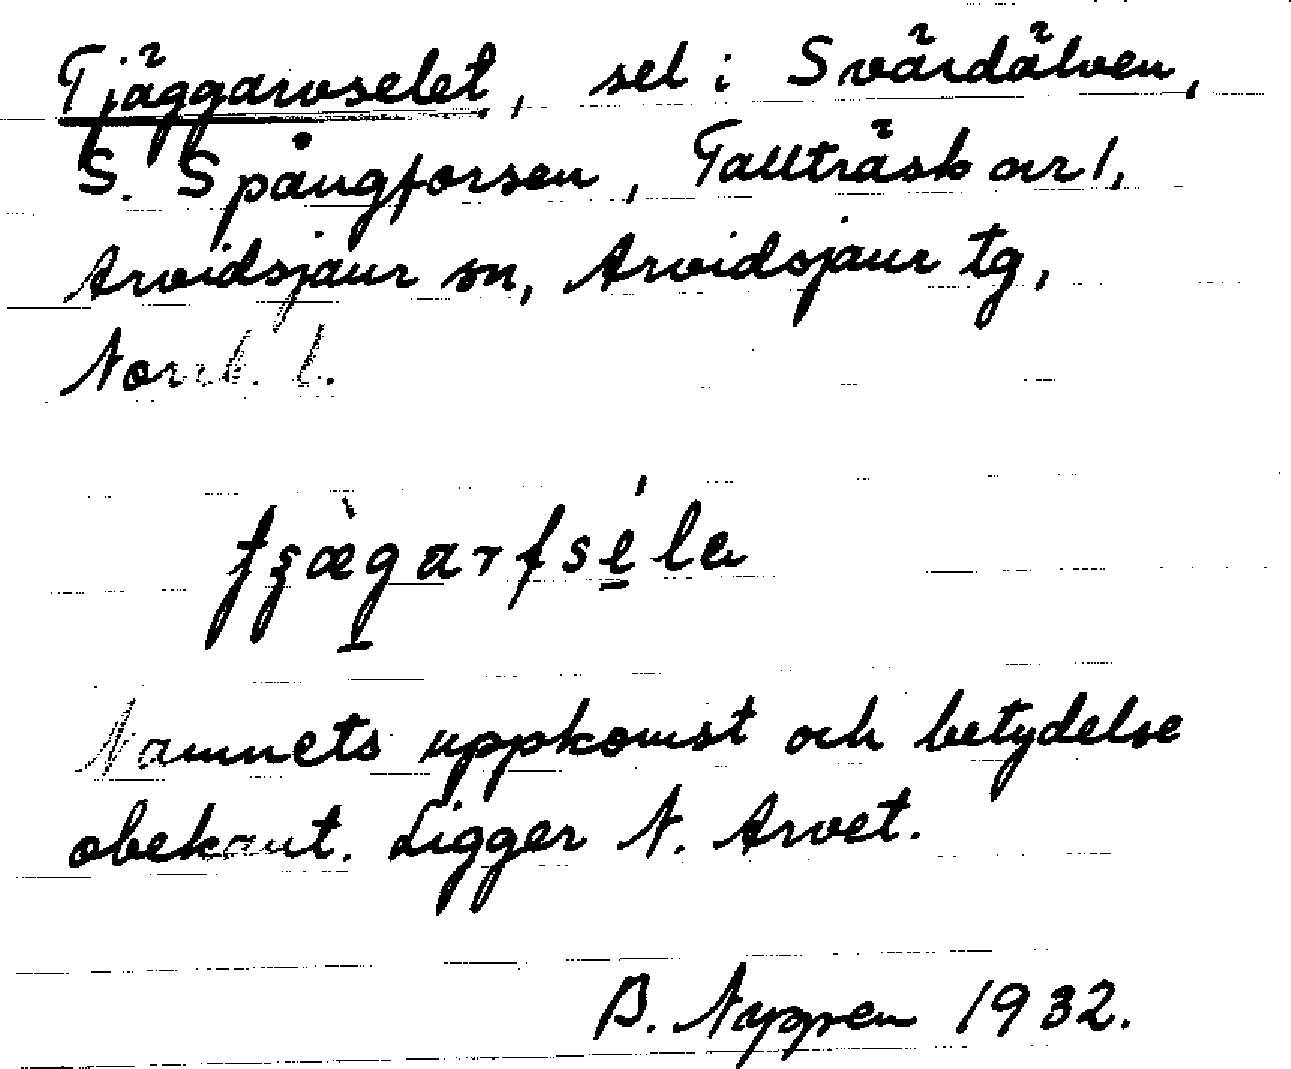 Tjäggarvselet, sel i Svärdälven,
S. Spångforsen, Tallträsk
Arvidsjaur sn, Arvidsjaur tg,
Norrb. l.
Namnets uppkomst och betydelse
obekant. Ligger N. Arvet.
B. Nappen 1932.